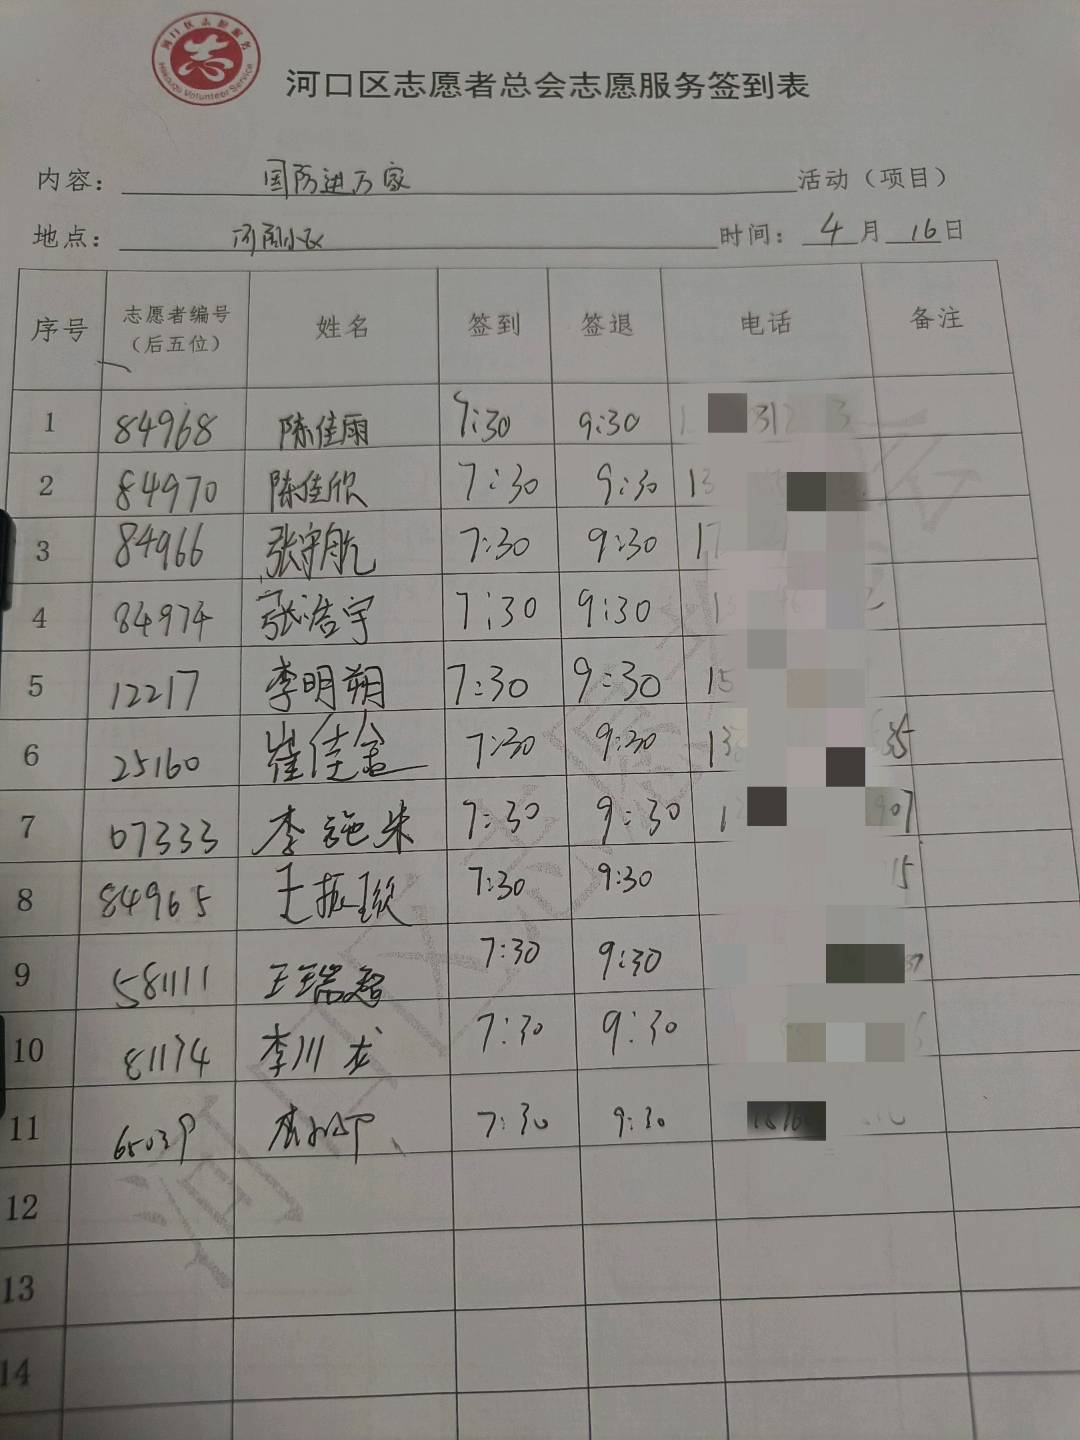 河口区志愿服务
志
Hekouqu Volunteer Service
河口区志愿者总会志愿服务签到表
内容： 国防进万家 活动（项目）
地点： 河南小区 时间： 4月 16日
序号 志愿者编号（后五位） 姓名 签到 签退 电话 备注
1 84968 陈佳雨 7:30 9:30
2 84970 陈佳欣 7:30 9:30 13
3 84966 张宇航 7:30 9:30 17
4 84974 张浩宇 7:30 9:30
5 12217 李明朔 7:30 9:30 15
6 25160 崔佳金 7:30 9:30 13
7 07333 李 7:30 9:30 907
8 84965 王振 7:30 9:30 15
9 581111 王瑞超 7:30 9:30
10 81174 李川龙 7:30 9:30
11 65039 7:30 9:30
12
13
14